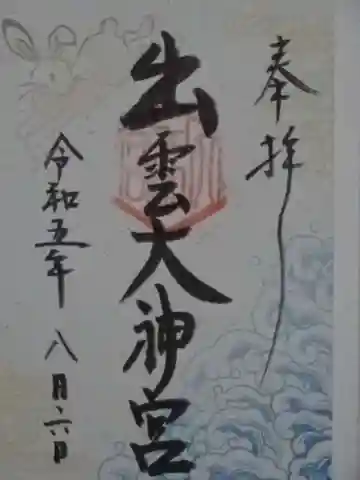 奉拝
出雲大神宮
令和五年八月六日